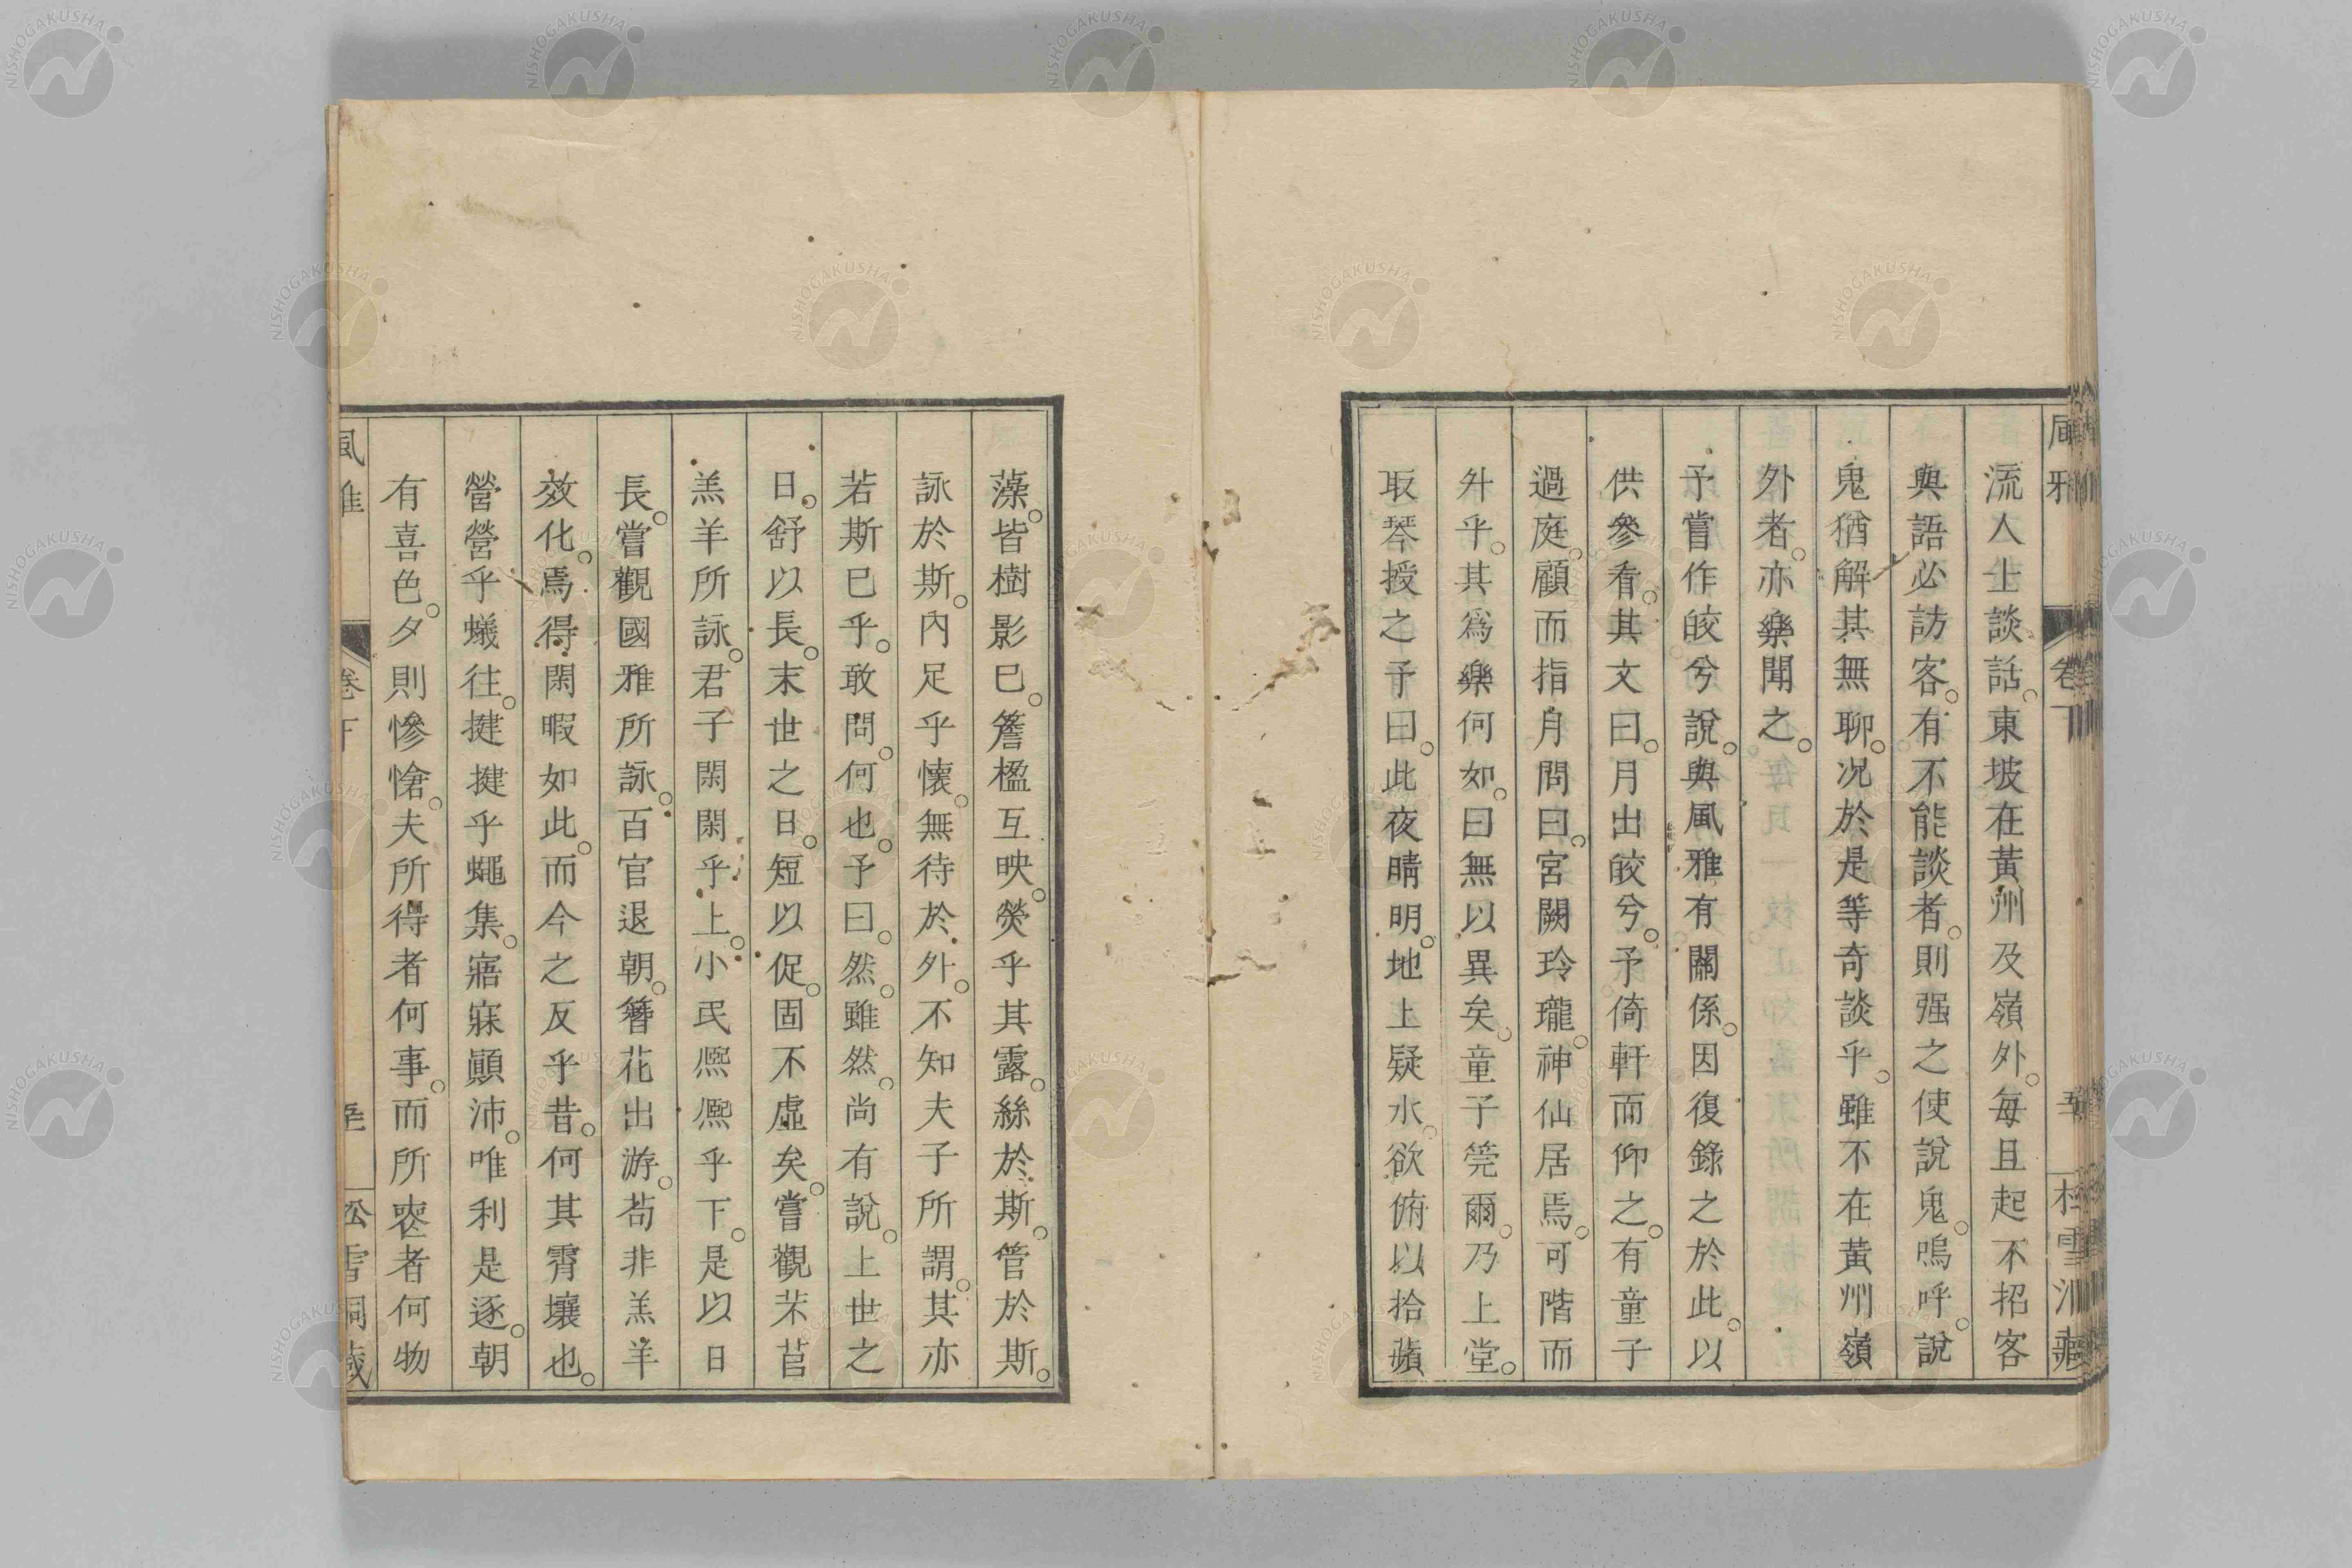 流人士談話。東坡在黃州及嶺外。每旦起不招客
與語必訪客。有不能談者。則强之使說鬼。嗚呼。說
鬼猶解其無聊。况於是等奇談乎。雖不在黃州嶺
外者。亦樂聞之。
予嘗作皎兮說。與風雅有關係。因復錄之於此。以
供參看。其文曰。月出皎兮。予倚軒而仰之。有童子
過庭。顧而指月問曰。宮闕玲瓏。神仙居焉。可階而
升乎。其爲樂何如。曰無以異矣。童子筦爾。乃上堂。
取琴授之予曰。此夜晴明。地上疑水。欲俯以拾蘋
藻。皆樹影巳。簷楹互映。熒乎其露。絲於斯。管於斯。
詠於斯。內足乎懷。無待於外。不知夫子所謂。其亦
若斯巳乎。敢問。何也。予曰。然。雖然。尚有說。上世之
日。舒以長。末世之日。短以促。固不虛矣。嘗觀芣苢
羔羊所詠。君子閑閑乎上。小民熈熈乎下。是以日
長。嘗觀國雅所詠。百官退朝。簪花出游。苟非羔羊
效化。焉得閑暇如此。而今之反乎昔。何其霄壤也。
營營乎蟻往。揵揵乎蠅集。寤寐顚沛。唯利是逐。朝
有喜色。夕則慘愴。夫所得者何事。而所喪者何物
風雅
卷下
松雪洞藏
NISHOGAKUSHA